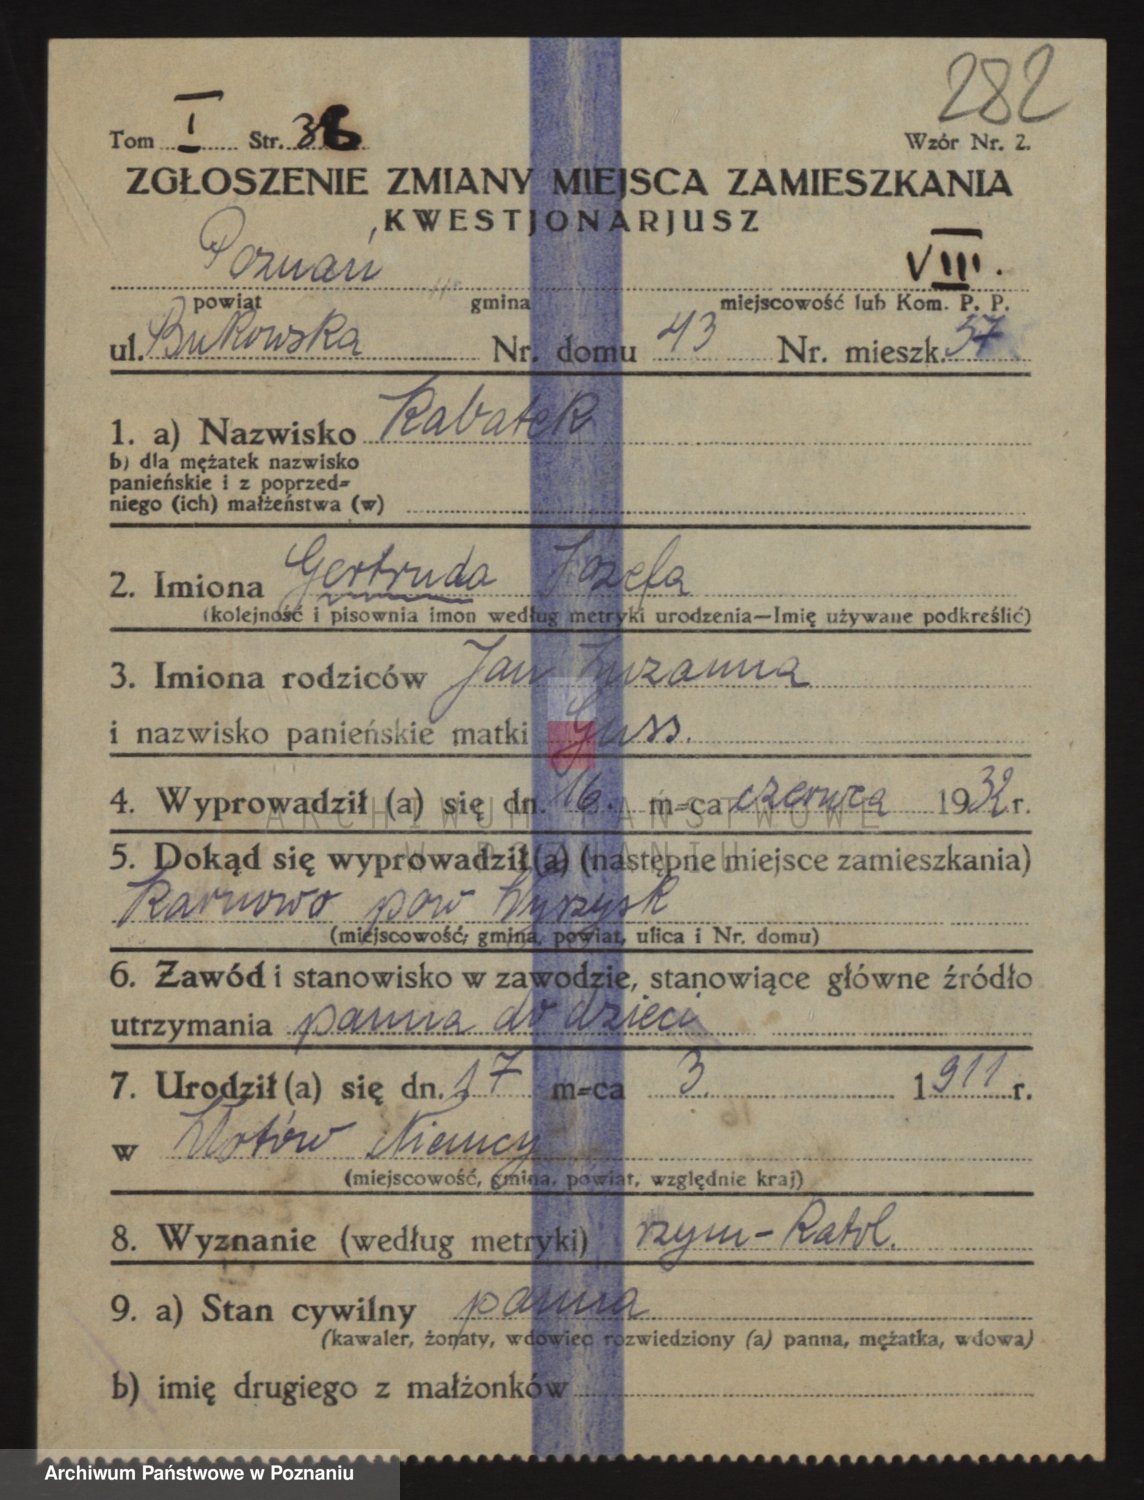 282
Tom I Str. 36
Wzór Nr. 2.
ZGŁOSZENIE ZMIANY MIEJSCA ZAMIESZKANIA
KWESTJONARJUSZ
Poznań VIII.
powiat gmina miejscowość lub Kom. P. P.
ul. Bukowska Nr. domu 43 Nr. mieszk. 57
1. a) Nazwisko Kabatek
b) dla mężatek nazwisko
panieńskie i z poprzed=
niego (ich) małżeństwa (w)
2. Imiona Gertruda Józefa
(kolejność i pisownia imon według metryki urodzenia—Imię używane podkreślić)
3. Imiona rodziców Jan Zuzanna
i nazwisko panieńskie matki Guss.
4. Wyprowadził (a) się dn. 16. m=ca czerwca 1932 r.
ARCHIWUM PAŃSTWOWE
W POZNANIU
5. Dokąd się wyprowadził(a) (następne miejsce zamieszkania)
Karnowo pow Wyrzysk
(miejscowość, gmina, powiat, ulica i Nr. domu)
6. Zawód i stanowisko w zawodzie, stanowiące główne źródło
utrzymania panna do dzieci
7. Urodził (a) się dn. 17 m=ca 3. 1911 r.
w Niemcy
(miejscowość, gmina, powiat, względnie kraj)
8. Wyznanie (według metryki) rzym-katol.
9. a) Stan cywilny panna
(kawaler, żonaty, wdowiec rozwiedziony (a) panna, mężatka, wdowa)
b) imię drugiego z małżonków
Archiwum Państwowe w Poznaniu